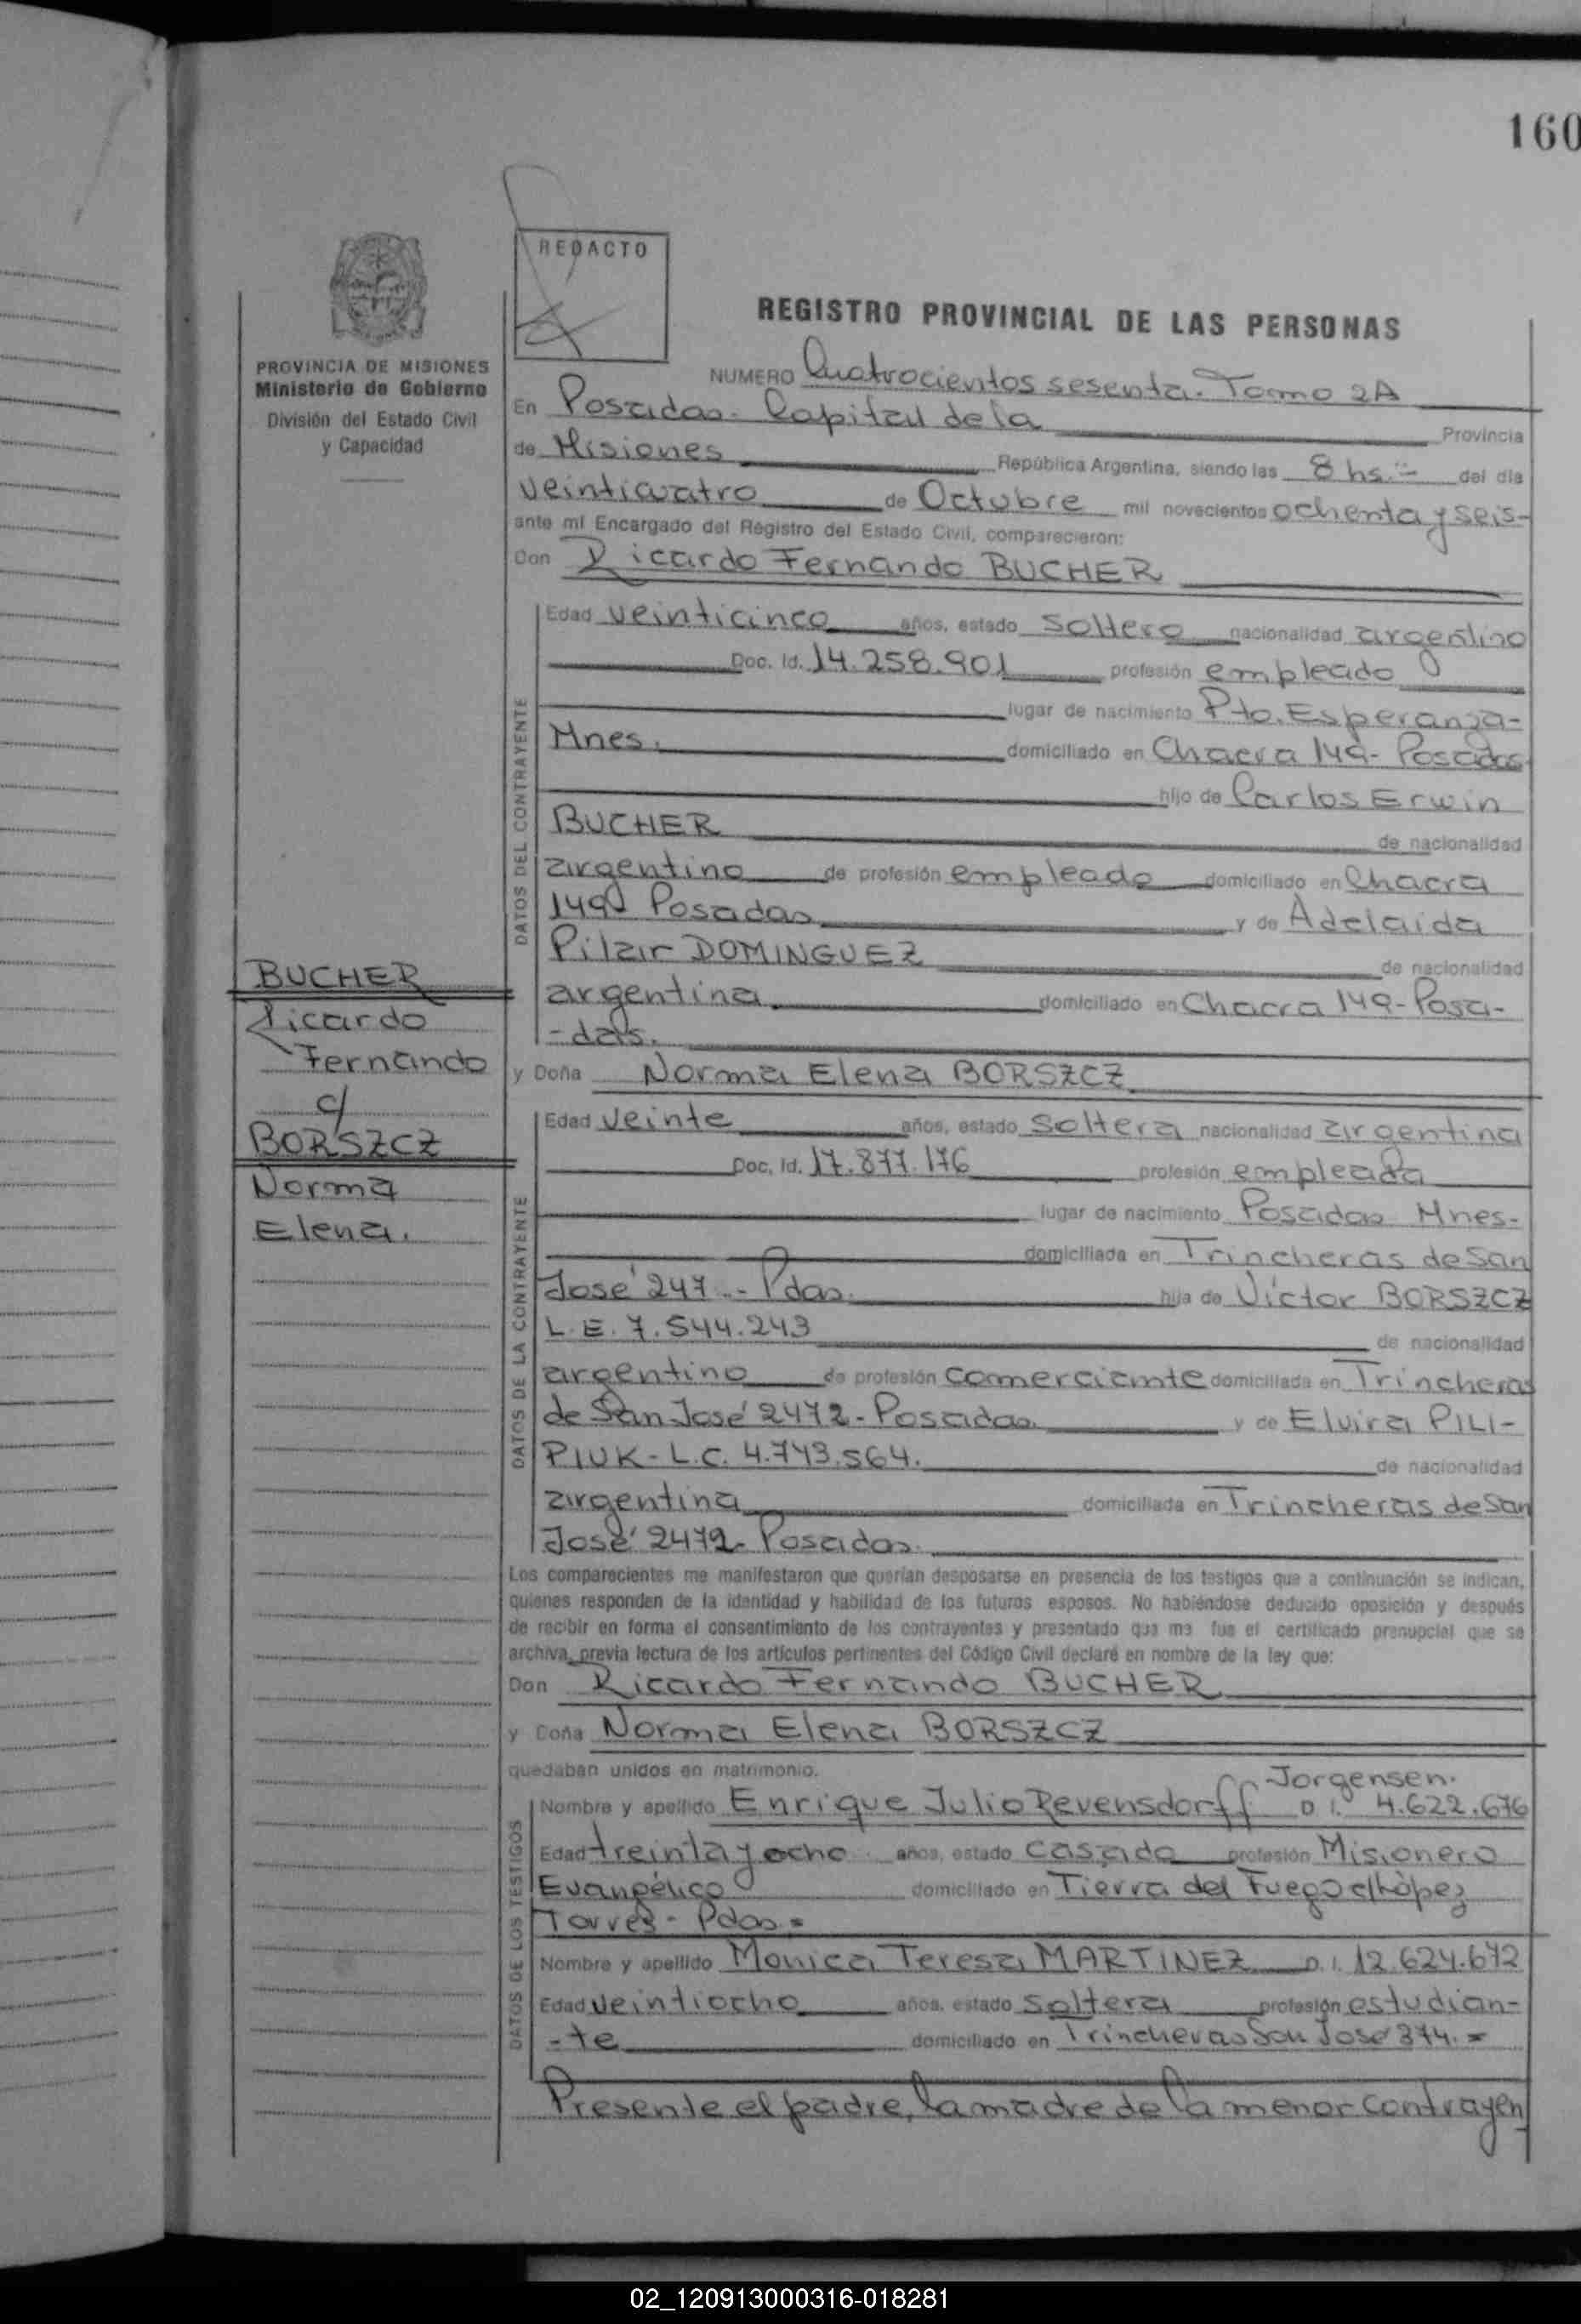 160
REDACTO
PROVINCIA DE MISIONES
Ministerio de Gobierno
División del Estado Civil
y Capacidad
REGISTRO PROVINCIAL DE LAS PERSONAS
NUMERO Cuatrocientos sesenta. Tomo 2A
En Posadas. Capital de la Provincia
de Misiones República Argentina, siendo las 8 hs.- del día
veinticuatro de Octubre mil novecientos ochenta y seis-
ante mí Encargado del Registro del Estado Civil, comparecieron:
Don Ricardo Fernando BUCHER
DATOS DEL CONTRAYENTE
Edad veinticinco años, estado soltero nacionalidad argentino
Doc. Id. 14.258.901 profesión empleado
lugar de nacimiento Pto. Esperanza-
Mnes. domiciliado en Chacra 149- Posadas
hijo de Carlos Erwin
BUCHER de nacionalidad
argentino de profesión empleado domiciliado en Chacra
149 Posadas y de Adelaida
Pilar DOMINGUEZ de nacionalidad
argentina domiciliado en Chacra 149-Posa-
-das.
BUCHER
Ricardo
Fernando
c/
BORSZCZ
Norma
Elena.
y Doña Norma Elena BORSZCZ
DATOS DE LA CONTRAYENTE
Edad veinte años, estado soltera nacionalidad argentina
Doc. Id. 17.877.176 profesión empleada
lugar de nacimiento Posadas Mnes-
domiciliada en Trincheras de San
José 247 - Pdas. hija de Víctor BORSZCZ
L.E. 7.544.243 de nacionalidad
argentino de profesión comerciante domiciliada en Trincheras
de San José 2472- Posadas. y de Elvira PILI-
PIUK - L.C. 4.743.564. de nacionalidad
argentina domiciliada en Trincheras de San
José 2472- Posadas.
Los comparecientes me manifestaron que querían desposarse en presencia de los testigos que a continuación se indican,
quienes responden de la identidad y habilidad de los futuros esposos. No habiéndose deducido oposición y después
de recibir en forma el consentimiento de los contrayentes y presentado que me fue el certificado prenupcial que se
archiva, previa lectura de los artículos pertinentes del Código Civil declaré en nombre de la ley que:
Don Ricardo Fernando BUCHER
y Doña Norma Elena BORSZCZ
quedaban unidos en matrimonio.
DATOS DE LOS TESTIGOS
Jorgensen.
Nombre y apellido Enrique Julio Revensdorff D.I. 4.622.676
Edad treinta y ocho años, estado casado profesión Misionero
Evangélico domiciliado en Tierra del Fuego c/López
Torres - Pdas=
Nombre y apellido Monica Teresa MARTINEZ D.I. 12.624.672
Edad veintiocho años, estado soltera profesión estudian-
-te domiciliado en Trincheras San José 374.=
Presente el padre, la madre de la menor contrayen
02_120913000316-018281